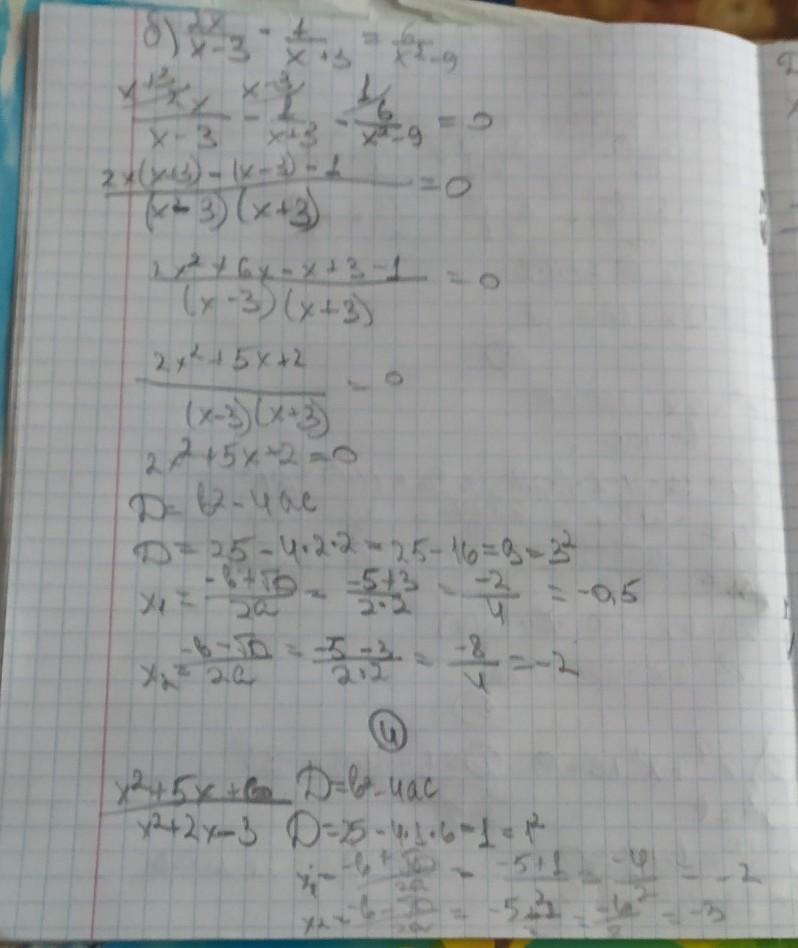 б) 2x/x-3 - 1/x+3 = 6/x²-9
x+3/ 2x/x-3 - x-3/ 1/x+3 - 1/ 6/x²-9 = 0
2x(x+3)-(x-3)-1/(x-3)(x+3) = 0
2x²+6x-x+3-1/(x-3)(x+3) = 0
2x²+5x+2/(x-3)(x+3) = 0
2x²+5x+2=0
D= b2-4ac
D= 25-4·2·2=25-16=9=3²
x₁= -b+√D/2a = -5+3/2·2 = -2/4 = -0,5
x₂= -b-√D/2a = -5-3/2·2 = -8/4 = -2
④
x²+5x+6/x²+2x-3 D=b²-4ac
D=25-4·1·6=1=1²
x₁= -b+√D/2a = -5+1/2 = -4/2 = -2
x₂= -b-√D/2a = = -6/2 = -3